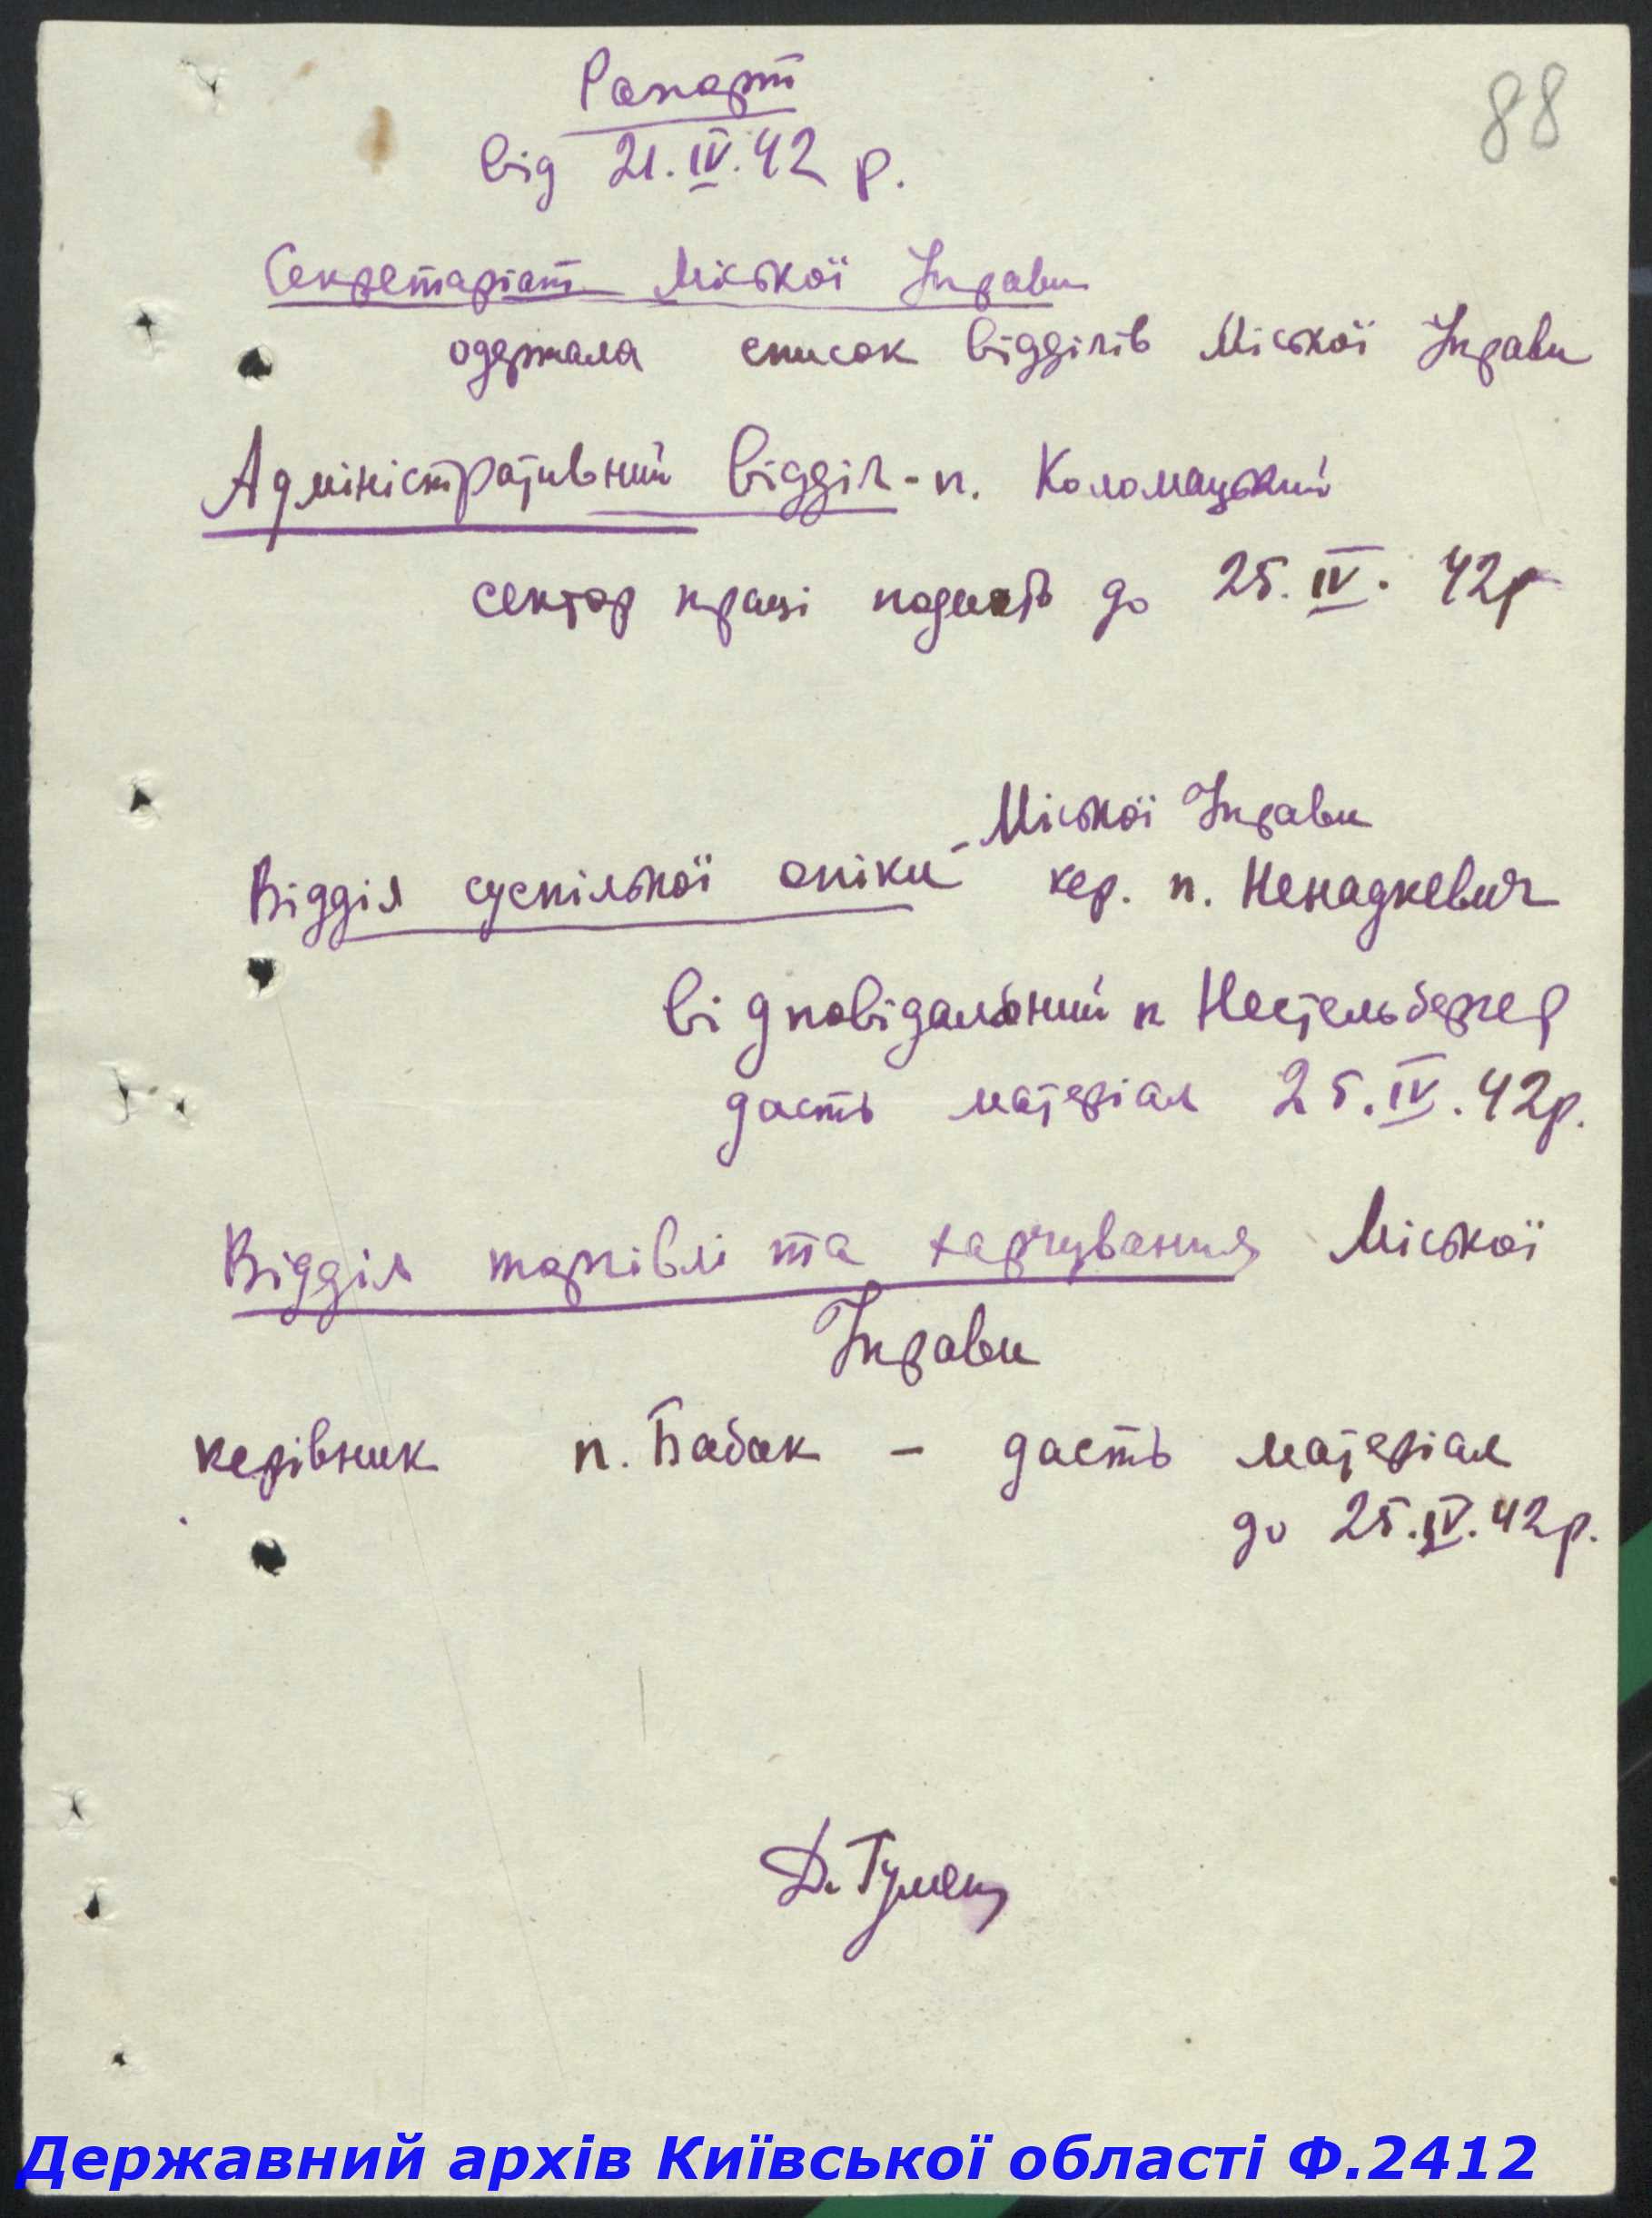 Рапорт
88
від 21.IV.42 р.
Секретаріат Міської Управи
одержала список відділів Міської Управи
Адміністративний відділ - п. Коломацький
сектор праці подасть до 25.IV.42р
Міської Управи
Відділ суспільної опіки - кер. п. Ненадкевич
відповідальний п Нестельбергер
дасть матеріал 25.IV.42р.
Відділ торгівлі та харчування Міської
Управи
керівник п. Бабак - дасть матеріал
до 25.IV.42р.
Д.
Державний архів Київської області Ф.2412